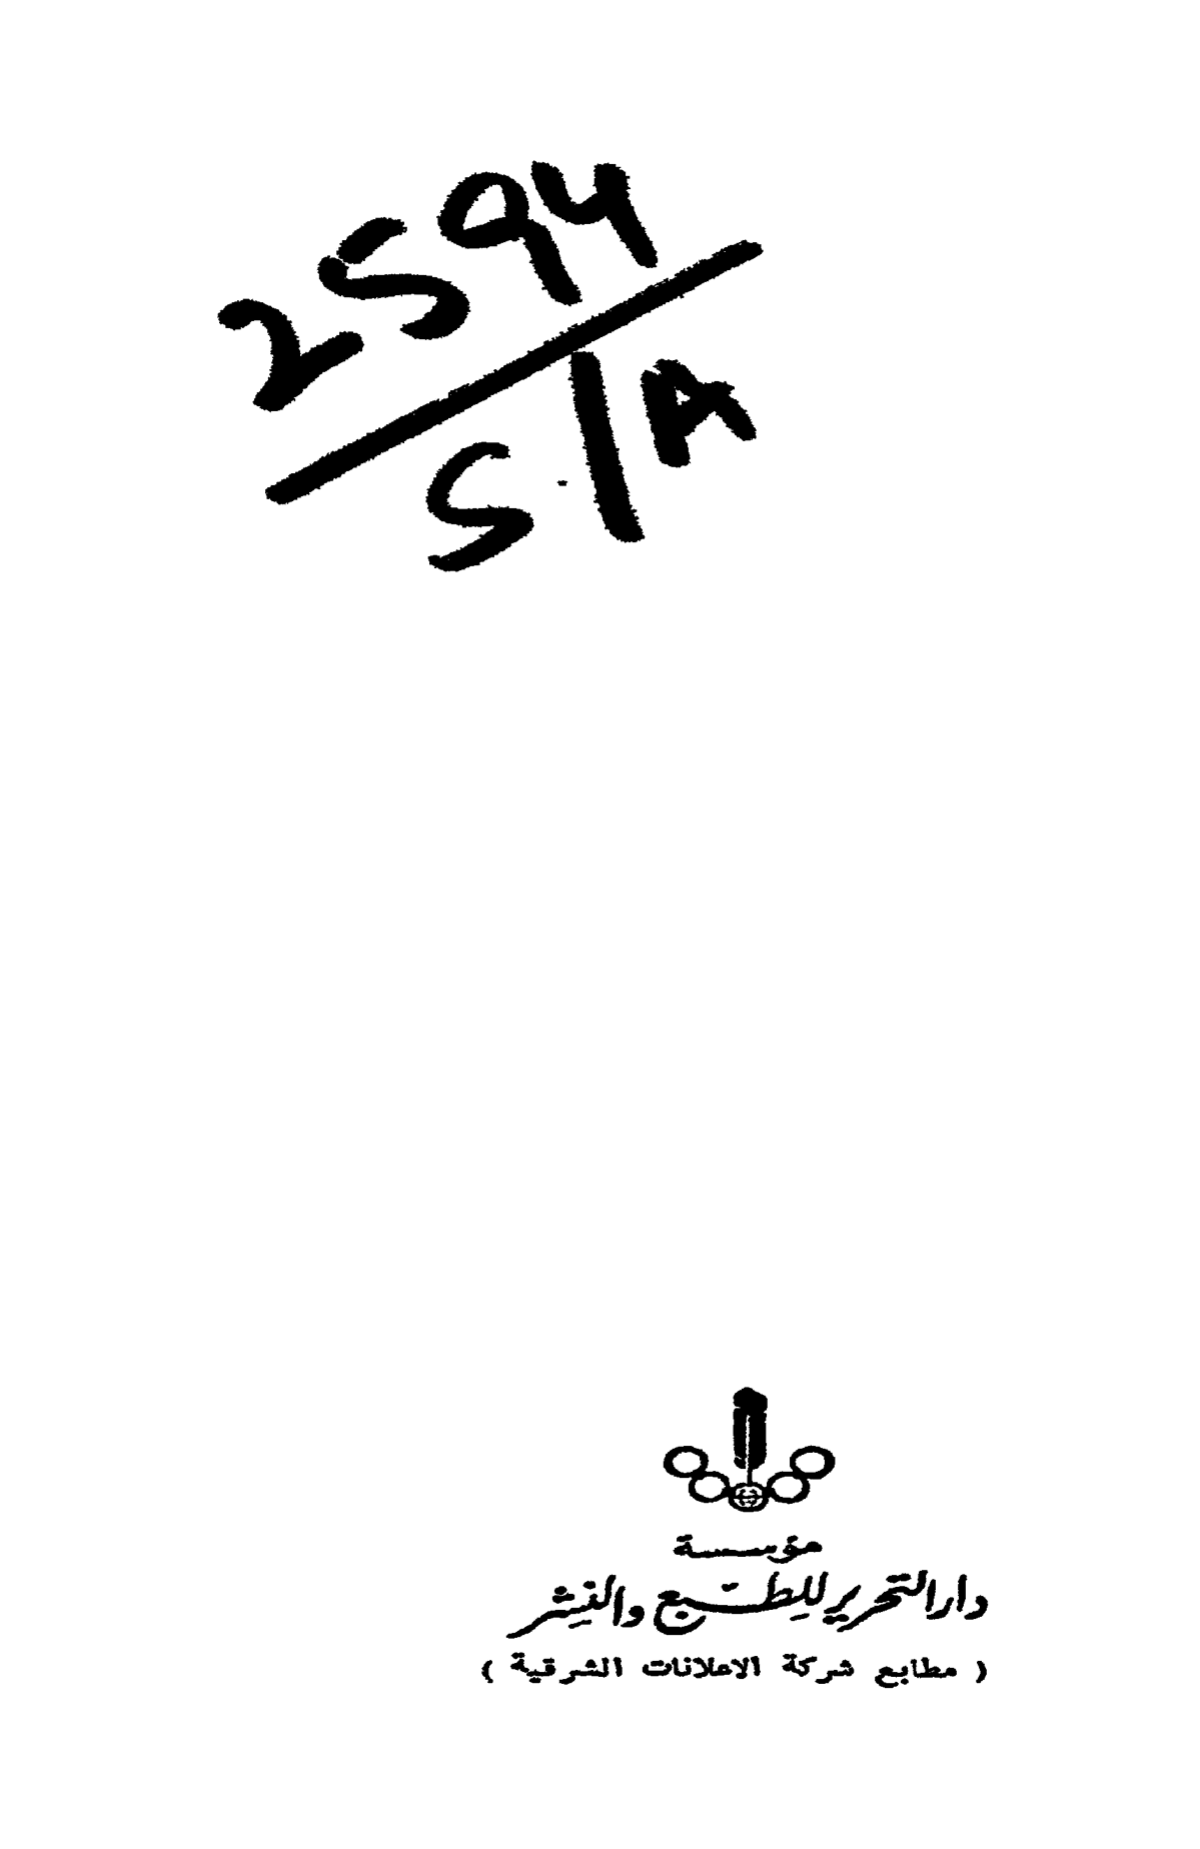 2594
S/A
مؤسسة
دار التحرير للطبع والنشر
( مطابع شركة الاعلانات الشرقية )